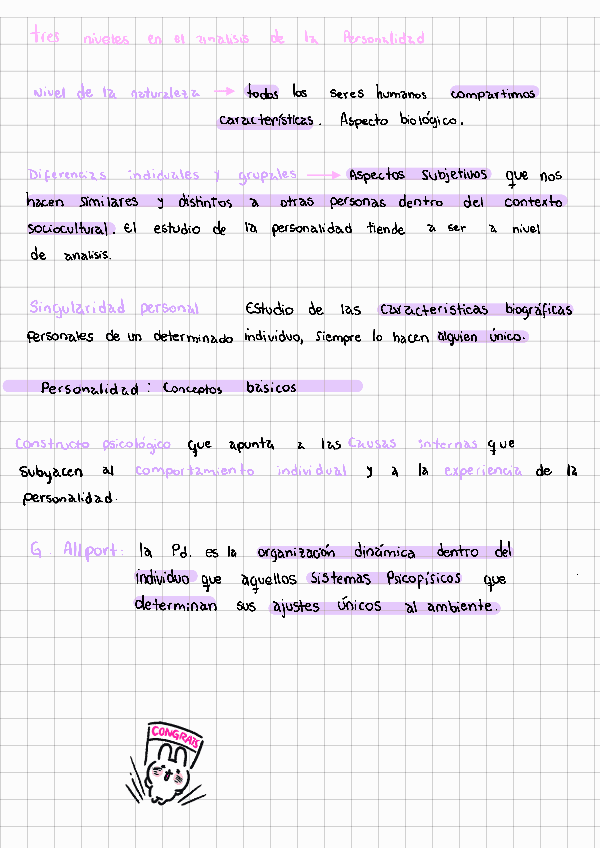 tres niveles en el analisis de la Personalidad
Nivel de la naturaleza → todos los seres humanos compartimos
características. Aspecto biológico.
Diferencias individuales y grupales → Aspectos Subjetivos que nos
hacen similares y distintos a otras personas dentro del contexto
sociocultural. El estudio de la personalidad tiende a ser a nivel
de analisis.
Singularidad personal Estudio de las características biográficas
Personales de un determinado individuo, siempre lo hacen alguien único.
Personalidad: Conceptos básicos
Constructo psicológico que apunta a las Causas internas que
subyacen al comportamiento individual y a la experiencia de la
personalidad.
G. Allport: la Pd. es la organización dinámica dentro del
individuo que aquellos Sistemas Psicofísicos que
determinan sus ajustes únicos al ambiente.
CONGRATS